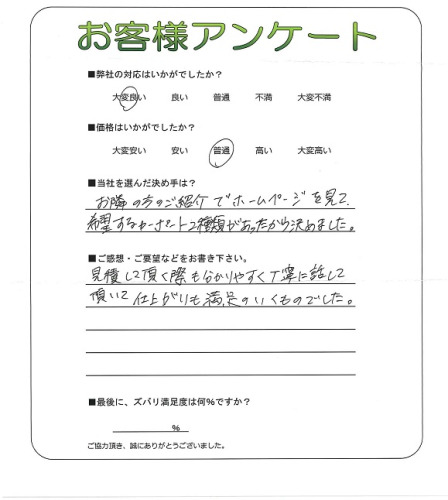 お客様アンケート
■弊社の対応はいかがでしたか？
大変良い 良い 普通 不満 大変不満
■価格はいかがでしたか？
大変安い 安い 普通 高い 大変高い
■当社を選んだ決め手は？
お隣の方のご紹介でホームページを見て、
希望するカーポート2種類があったから決めました。
■ご感想・ご要望などをお書き下さい。
見積して頂く際も分かりやすく丁寧に話して
頂いて仕上がりも満足のいくものでした。
■最後に、ズバリ満足度は何%ですか？
%
ご協力頂き、誠にありがとうございました。